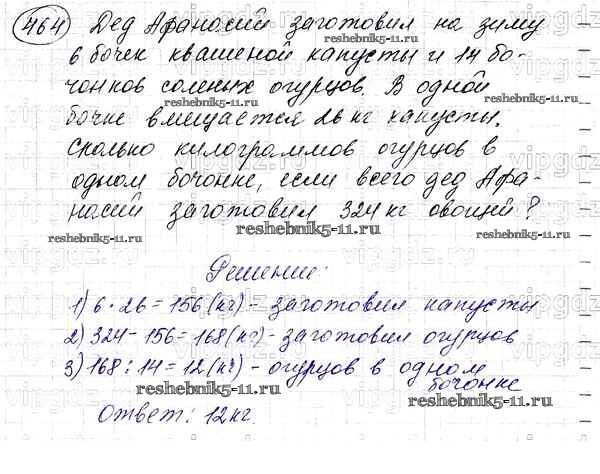 464) Дед Афанасий заготовил на зиму
6 бочек квашеной капусты и 14 бо-
чонков соленых огурцов. В одной
reshebnik5-11.ru
reshebnik5-11.ru
бочке вмещается 26 кг капусты.
Сколько килограммов огурцов в
одном бочонке, если всего дед Афа-
насий заготовил 324 кг овощей?
reshebnik5-11.ru
reshebnik5-11.ru
reshebnik5-11.ru
Решение:
1) 6 · 26 = 156 (кг) - заготовил капусты
2) 324 - 156 = 168 (кг) - заготовил огурцов
3) 168 : 14 = 12 (кг) - огурцов в одном
бочонке
reshebnik5-11.ru
reshebnik5-11.ru
Ответ: 12 кг.